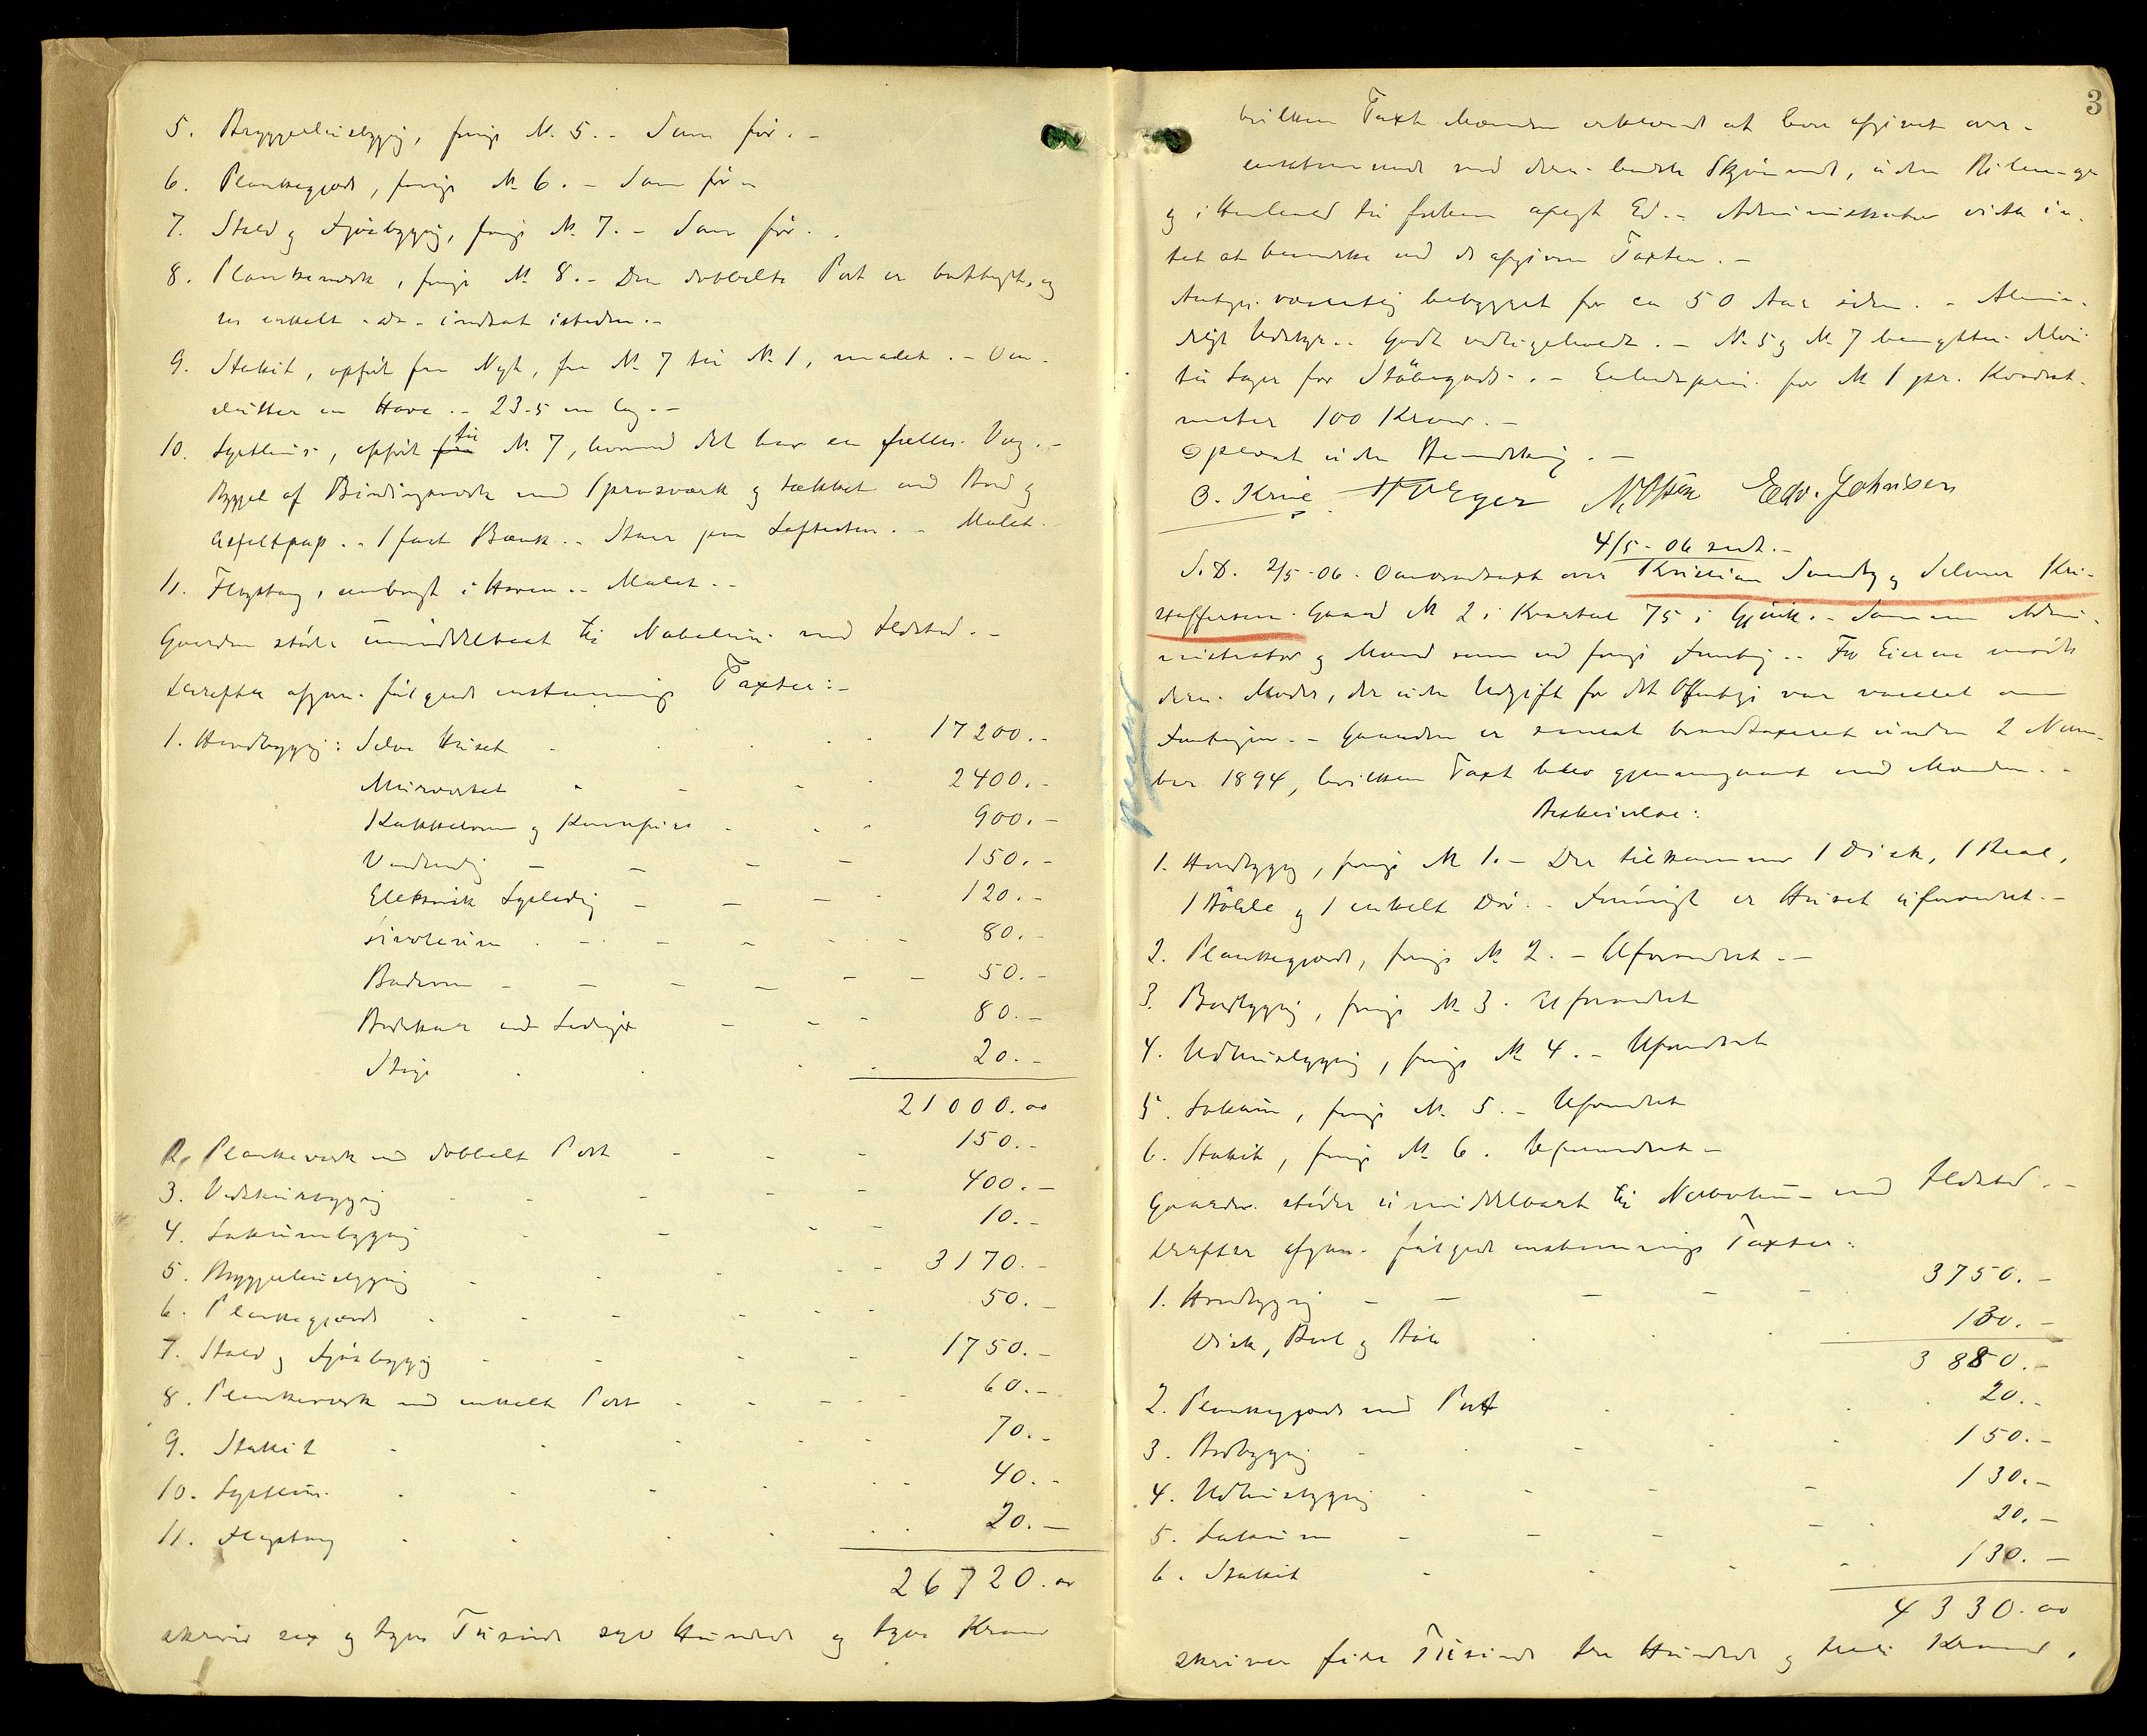 5. Bryggerhusbygning, forrige N. 5. - Som før. -
6. Plankegjærde, forrige N. 6. - Som før -
7. Stald og Fjøsbygning, forrige N. 7. - Som før. -
8. Plankeværk, forrige N. 8. - Den dobbelte Port er borttaget, og
en enkelt - do - indsat isteden. -
9. Stakit, opført fra Nyt, fra N. 7 til N. 1, malet. - Om-
slutter en Have. - 23.5 m lang. -
10. Lysthus, opført til N. 7, hvormed det har en fælles Væg. -
Bygget af Bindingsværk med Sprosseværk og tækket med Bord og
Asfaltpap. - 1 fast Bænk. - Malet.
11. Flagstang, anbragt i Haven. - Malet. -
Gaarden støder umiddelbart til Nabohus med Ildsted. -
Derefter afgaves følgende enstemmige Taxter: -
1. Hovedbygning: Selve Huset 17200. -
Murværket 2400. -
Kakkelovne og Komfurer 900. -
Vandledning 150. -
Elektrisk Lysledning 120. -
Linoleum 80. -
Baderom 50. -
Badekar med Ledninger 80. -
Stige 20. -
21000.00
2. Plankeværk med dobbelt Port 150. -
3. Vedskursbygning 400. -
4. Lokumbygning 10. -
5. Bryggerhusbygning 3170. -
6. Plankegjærde 50. -
7. Stald og Fjøsbygning 1750. -
8. Plankeværk med enkelt Port 60. -
9. Stakit 70. -
10. Lysthus 40. -
11. Flagstang 20. -
26720.00
skriver sex og tyve Tusinde syv Hundrede og tyve Kroner
3
hvilken Taxt Mændene erklærede at have afgivet over-
ensstemmende med deres bedste Skjønnende, uden
og i Henhold til forhen aflagt Ed. - Administrator vidste in-
tet at bemærke ved de afgivne Taxter. -
væsentlig bebygget for ca 50 Aar siden. - Almin-
deligt Udstyr. - Godt vedligeholdt. - N. 5 og N. 7 benyttes
til Lager for Støbegods. - Enhedspris for N. 1 pr. Kvadrat-
meter 100 Kroner. -
Oplæst uden Bemærkning. -
O. Edv. Johnsen
4/5 - 06 sendt. -
S. D. 2/5 - 06. Omvurdertaxt over Kristian Sundby og Selmer Kri-
stoffersens Gaard N. 2 i Kvartal 75 i Gjøvik. - Samme Admi-
nistrator og Mænd som ved forrige Forretning. - For Eierne mødte
deres Moder, der uden Udgift for det Offentlige var varslet om
Forretningen. - Gaarden er senest brandtaxeret under 2 Novem-
ber 1894, hvilken Taxt blev gjennemgaaet med Mændene. -
Beskrivelse:
1. Hovedbygning, forrige N. 1. - Der tilkommer 1 Disk, 1 Reol,
1 Hylle og 1 enkelt Dør. - Forøvrigt er Huset uforandret. -
2. Plankegjærde, forrige N. 2. - Uforandret. -
3. Bodbygning, forrige N. 3. Uforandret
4. Udhusbygning, forrige N. 4. - Uforandret
5. Lokum, forrige N. 5. - Uforandret
6. Stakit, forrige N. 6. Uforandret -
Gaarden støder umiddelbart til Nabohus med Ildsted. -
Derefter afgaves følgende enstemmige Taxter:
1. Hovedbygning 3750. -
Disk, Reol og Hylle 130. -
3880. -
2. Plankegjærde med Port 20. -
3. Bodbygning 150. -
4. Udhusbygning 130. -
5. Lokum 20. -
6. Stakit 130. -
4330.00
skriver fire Tusinde tre Hundrede og tredive Kroner,